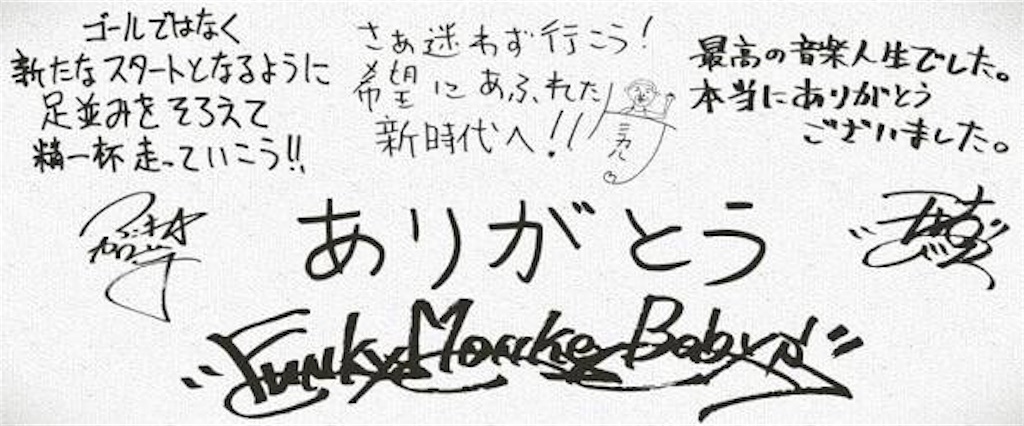 ゴールではなく
新たなスタートとなるように
足並みをそろえて
精一杯走っていこう!!
さぁ迷わず行こう!
希望にあふれた
新時代へ!!
ミカル
最高の音楽人生でした。
本当にありがとう
ございました。
ありがとう
"Funky Monkey Babys"